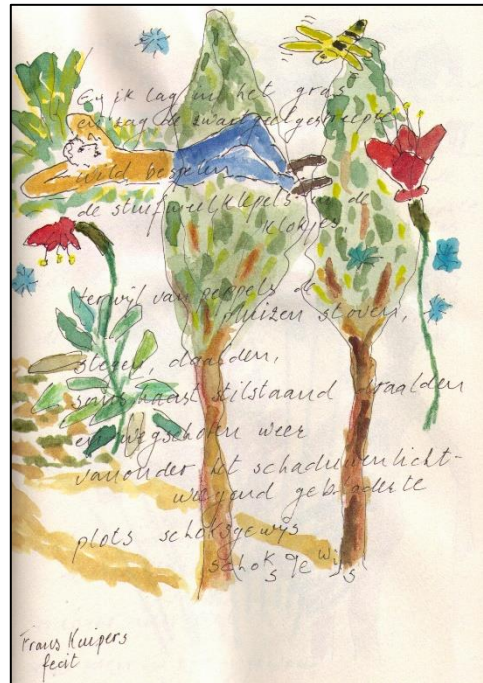 En ik lag in het gras
en zag de zwartgeelgestreepte
wild bespelen
de stuifmeelklepels in de
klokjes,
terwijl van peppels de
pluizen stoven,
stegen, daalden,
soms haast stilstaand draalden
en wegschoten weer
vanonder het schaduwenlicht-
wuivend gebladerte
plots schoksgewijs
schoksgewijs
Frans Kuipers
fecit